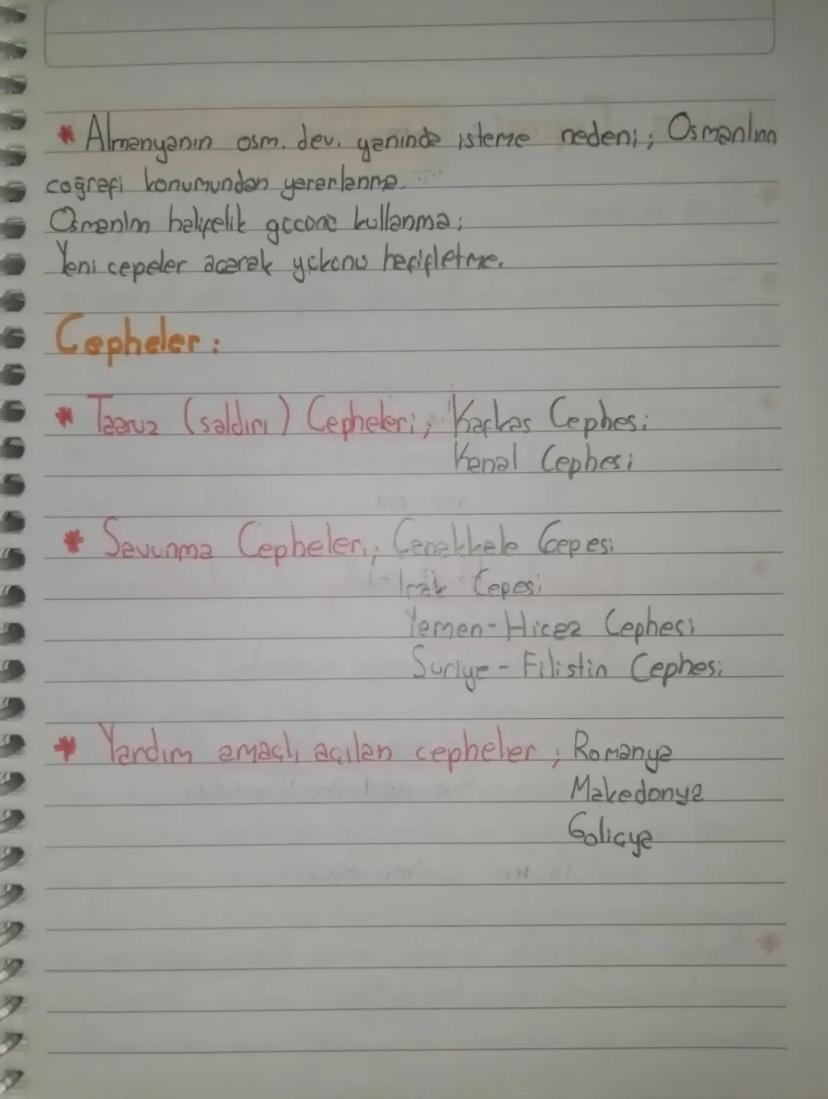 * Almanyanın osm. dev. yanında isteme nedeni; Osmanlının
coğrafi konumundan yararlanma.
Osmanlın halifelik gücünü kullanma;
Yeni cepeler açarak yükünü hafifletme.
Cepheler:
* Taaruz (saldırı) Cepheleri; Kafkas Cephesi
Kanal Cephesi
* Savunma Cepheleri; Çanakkale Cepesi
Irak Cepesi
Yemen-Hicaz Cephesi
Suriye-Filistin Cephesi
* Yardım amaçlı açılan cepheler; Romanya
Makedonya
Galiçya